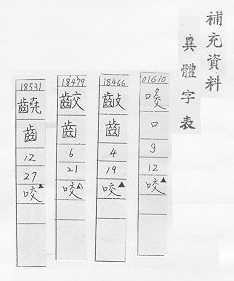 補充資料
異體字表
01610
口
9
12
咬▲
18466
齒
4
19
咬▲
18479
齩
齒
6
21
咬▲
18531
齒
12
27
咬▲